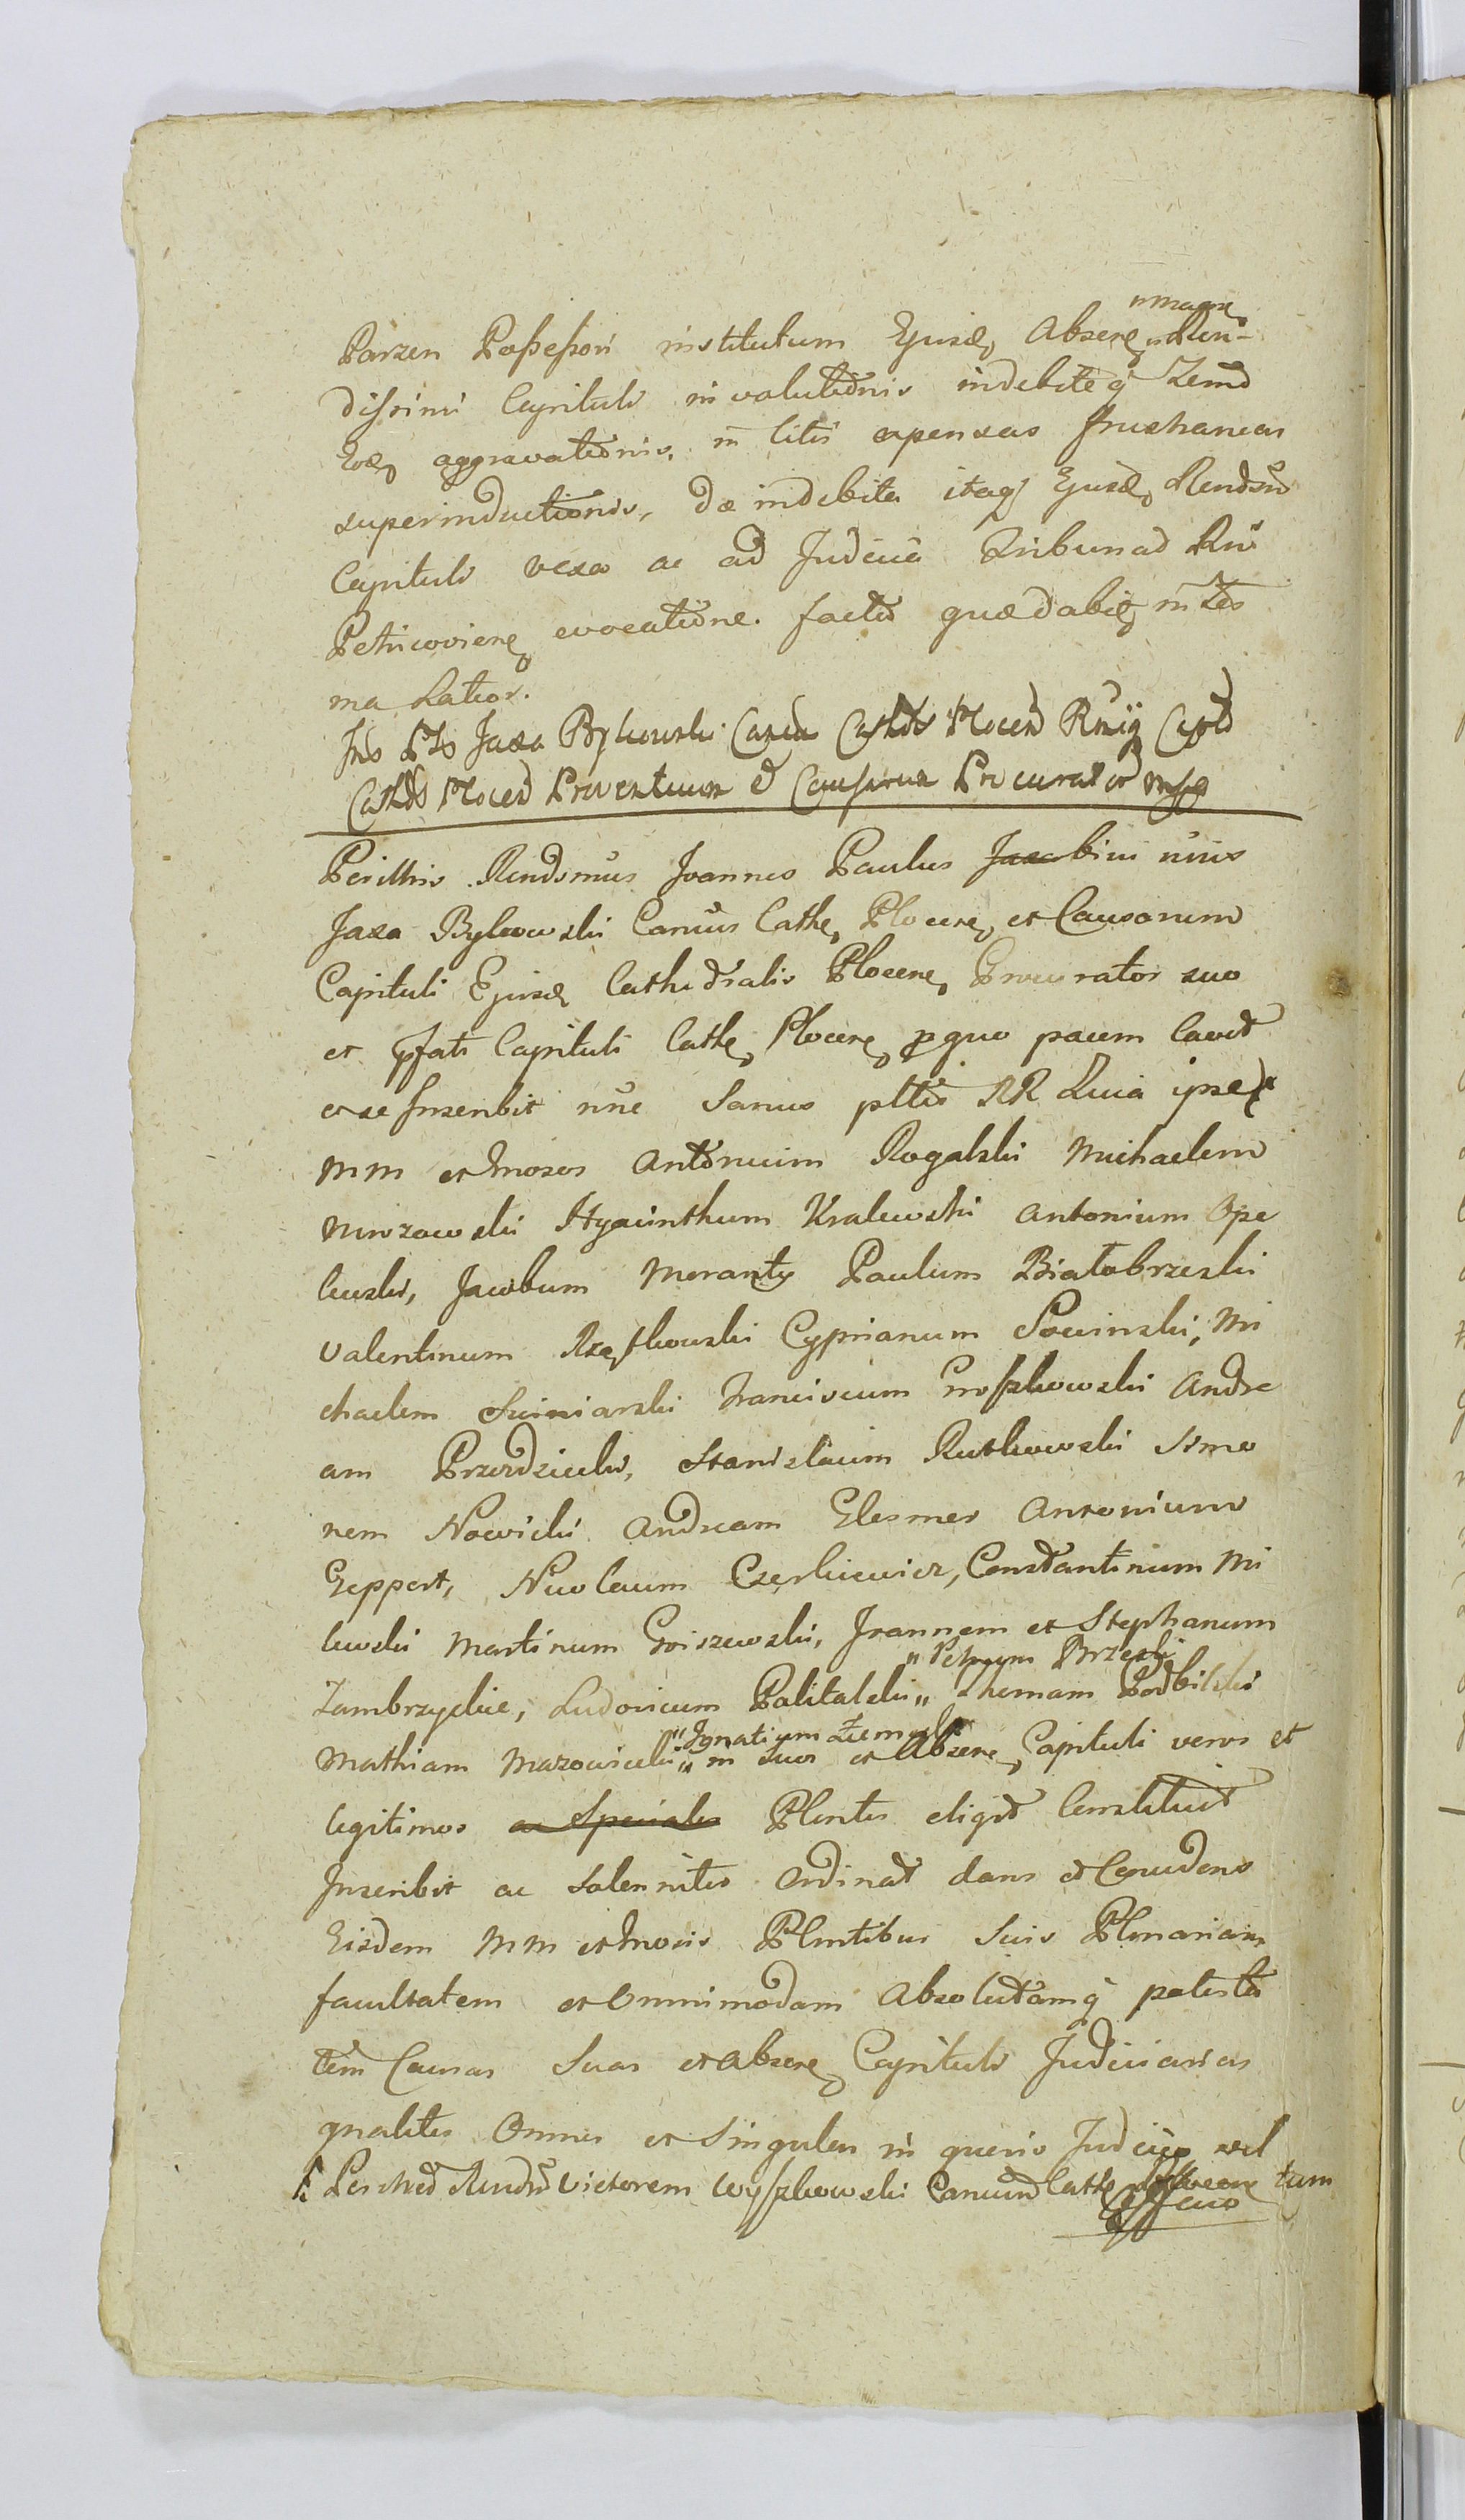 "magne
Parzen Possessori institutum Ejusd Absene, Ren-
dissimi Capituli in valutionis indebiteq Zemd
Eod, aggravationis, in litis expensas frustraneas
superinductionis, de indebita itaq Ejusd Rendsmi
Capituli vexa ac ad Judicia Tribunal Rni
Petricoviene evocatione. facto quaedabit, intes
ma Latior.
Jaxa Bykowski Cathdr Plocen
Cathdr Plocen Proventuum et Causarum Procurator mp
Perillris Rendsmus Joannes Paulus Jaxa bini nnis
Jaxa Bykowski Canus Cathe Plocene, et Causarum
Capituli Ejusd Cathedralis Plocene, Procurator suo
et pfati Capituli Cathe, Plocene, p quo pacem Cavet
et se Inscribit nunc Sanus plttis RR Quia ipse
MM et Gnosos Antonium Rogalski Michaelem
Mwrzowski Hyacinthum Kralewski Antonium Ope
lewski, Jacobum Moranty Paulum Białobrzeski
Valentinum Rzeszkowski Cyprianum Sowinski, Mi
chaelem Swiniarski Franciscum Proszkowski Andre
am Przezdziecki, Stanislaum Rutkowski Simo
nem Nowicki Andream Elesmer Antonium
Geppert, Nicolaum Czerkiewicz, Constantinum Mi
lewski Martinum Groszewski, Joannem et Stephanum
"Petrum Brzeski
Zambrzyckie, Ludovicum Palitalski" Thomam Podbilski
"Ignatium Ziemecki
Mathiam Mazowiecki" in suos et Absene Capituli veros et
legitimos ac Speciales Plentes eligit Constituit
Inscribit ac Solennites Ordinat dans et Concedens
Eisdem MM et Gnosis Plentibus Suis Plenariam
facultatem et Omnimodam Absolutamq potesta
tem Causas Suas et Absene Capituli Judiciarias
gnalites Omnes et Singulas in quevis Judiciis vel
Perilred Rendsm Victorem Wyszkowski Canum Cathe Plocene tum